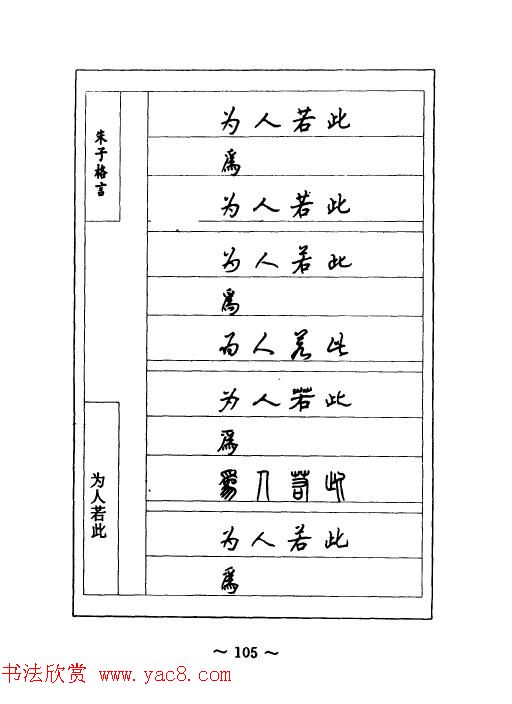 朱子格言
为人若此
为人若此
為
为人若此
为人若此
為
为人若此
为人若此
為
為人若此
为人若此
為
~ 105 ~
书法欣赏 www.yac8.com